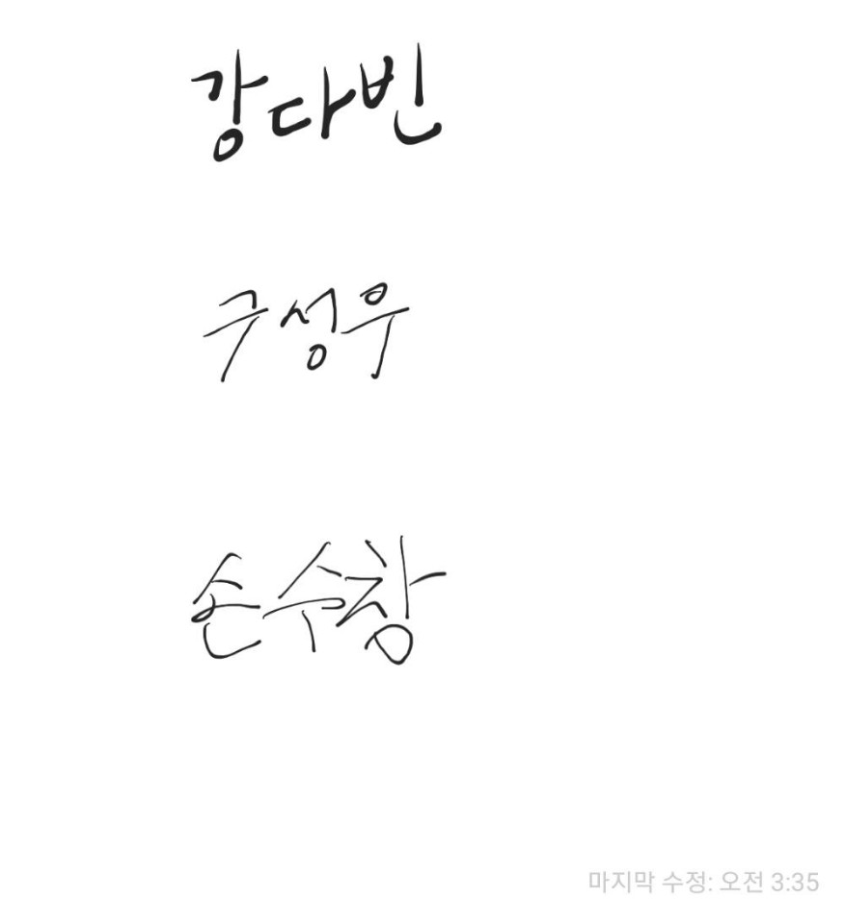 강다빈
구성우
손수창
마지막 수정: 오전 3:35